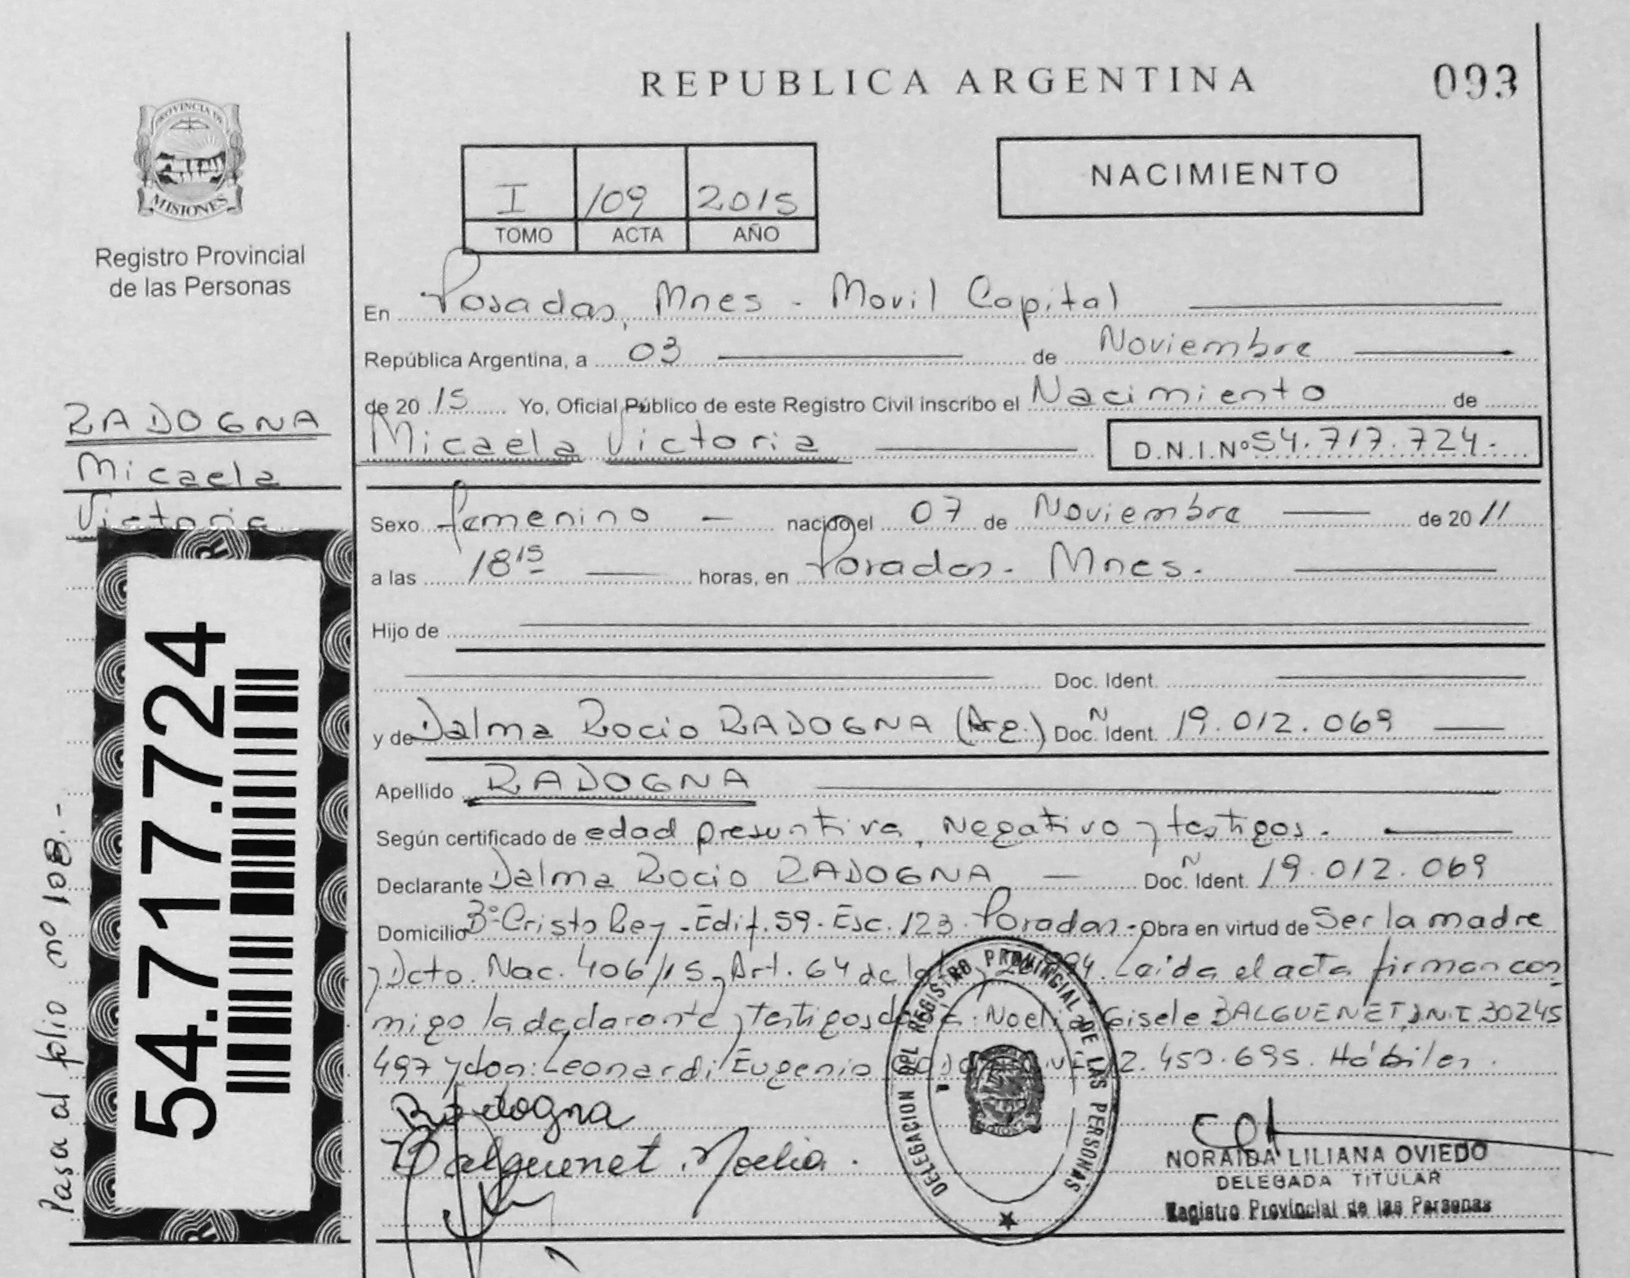 REPUBLICA ARGENTINA
093
PROVINCIA DE
MISIONES
Registro Provincial
de las Personas
I /09 2015
TOMO ACTA AÑO
NACIMIENTO
En Posadas, Mnes - Movil Capital
República Argentina, a 03 de Noviembre
de 2015 Yo, Oficial Público de este Registro Civil inscribo el Nacimiento de
Micaela Victoria D.N.I.Nº 54.717.724.
RADOGNA
Micaela
Victoria
Sexo femenino nacido el 07 de Noviembre de 2011
a las 18 15 horas, en Posadas. Mnes.
Hijo de
Doc. Ident.
y de Dalma Rocio RADOGNA (Arg.) Doc. Ident. 19.012.069
Apellido RADOGNA
Según certificado de edad presuntiva, Negativo y testigos.
Declarante Dalma Rocio RADOGNA Doc. Ident. 19.012.069
Domicilio Bº Cristo Rey - Edif. 59 - Esc. 123 - Posadas - Obra en virtud de Ser la madre
y Dcto. Nac. 406/15, Art. 64 de la Leida el acta firman con
migo la declarante y testigos Noelia Gisele BALGUENET, D.N.I 30245
497 y don: Leonardi Eugenio 2.450.695. Hábiles.
Radogna
Balguenet Noelia.
DELEGACION DEL REGISTRO PROVINCIAL DE LAS PERSONAS
NORAIDA LILIANA OVIEDO
DELEGADA TITULAR
Registro Provincial de las Personas
54.717.724
Pasa al folio nº 108.-